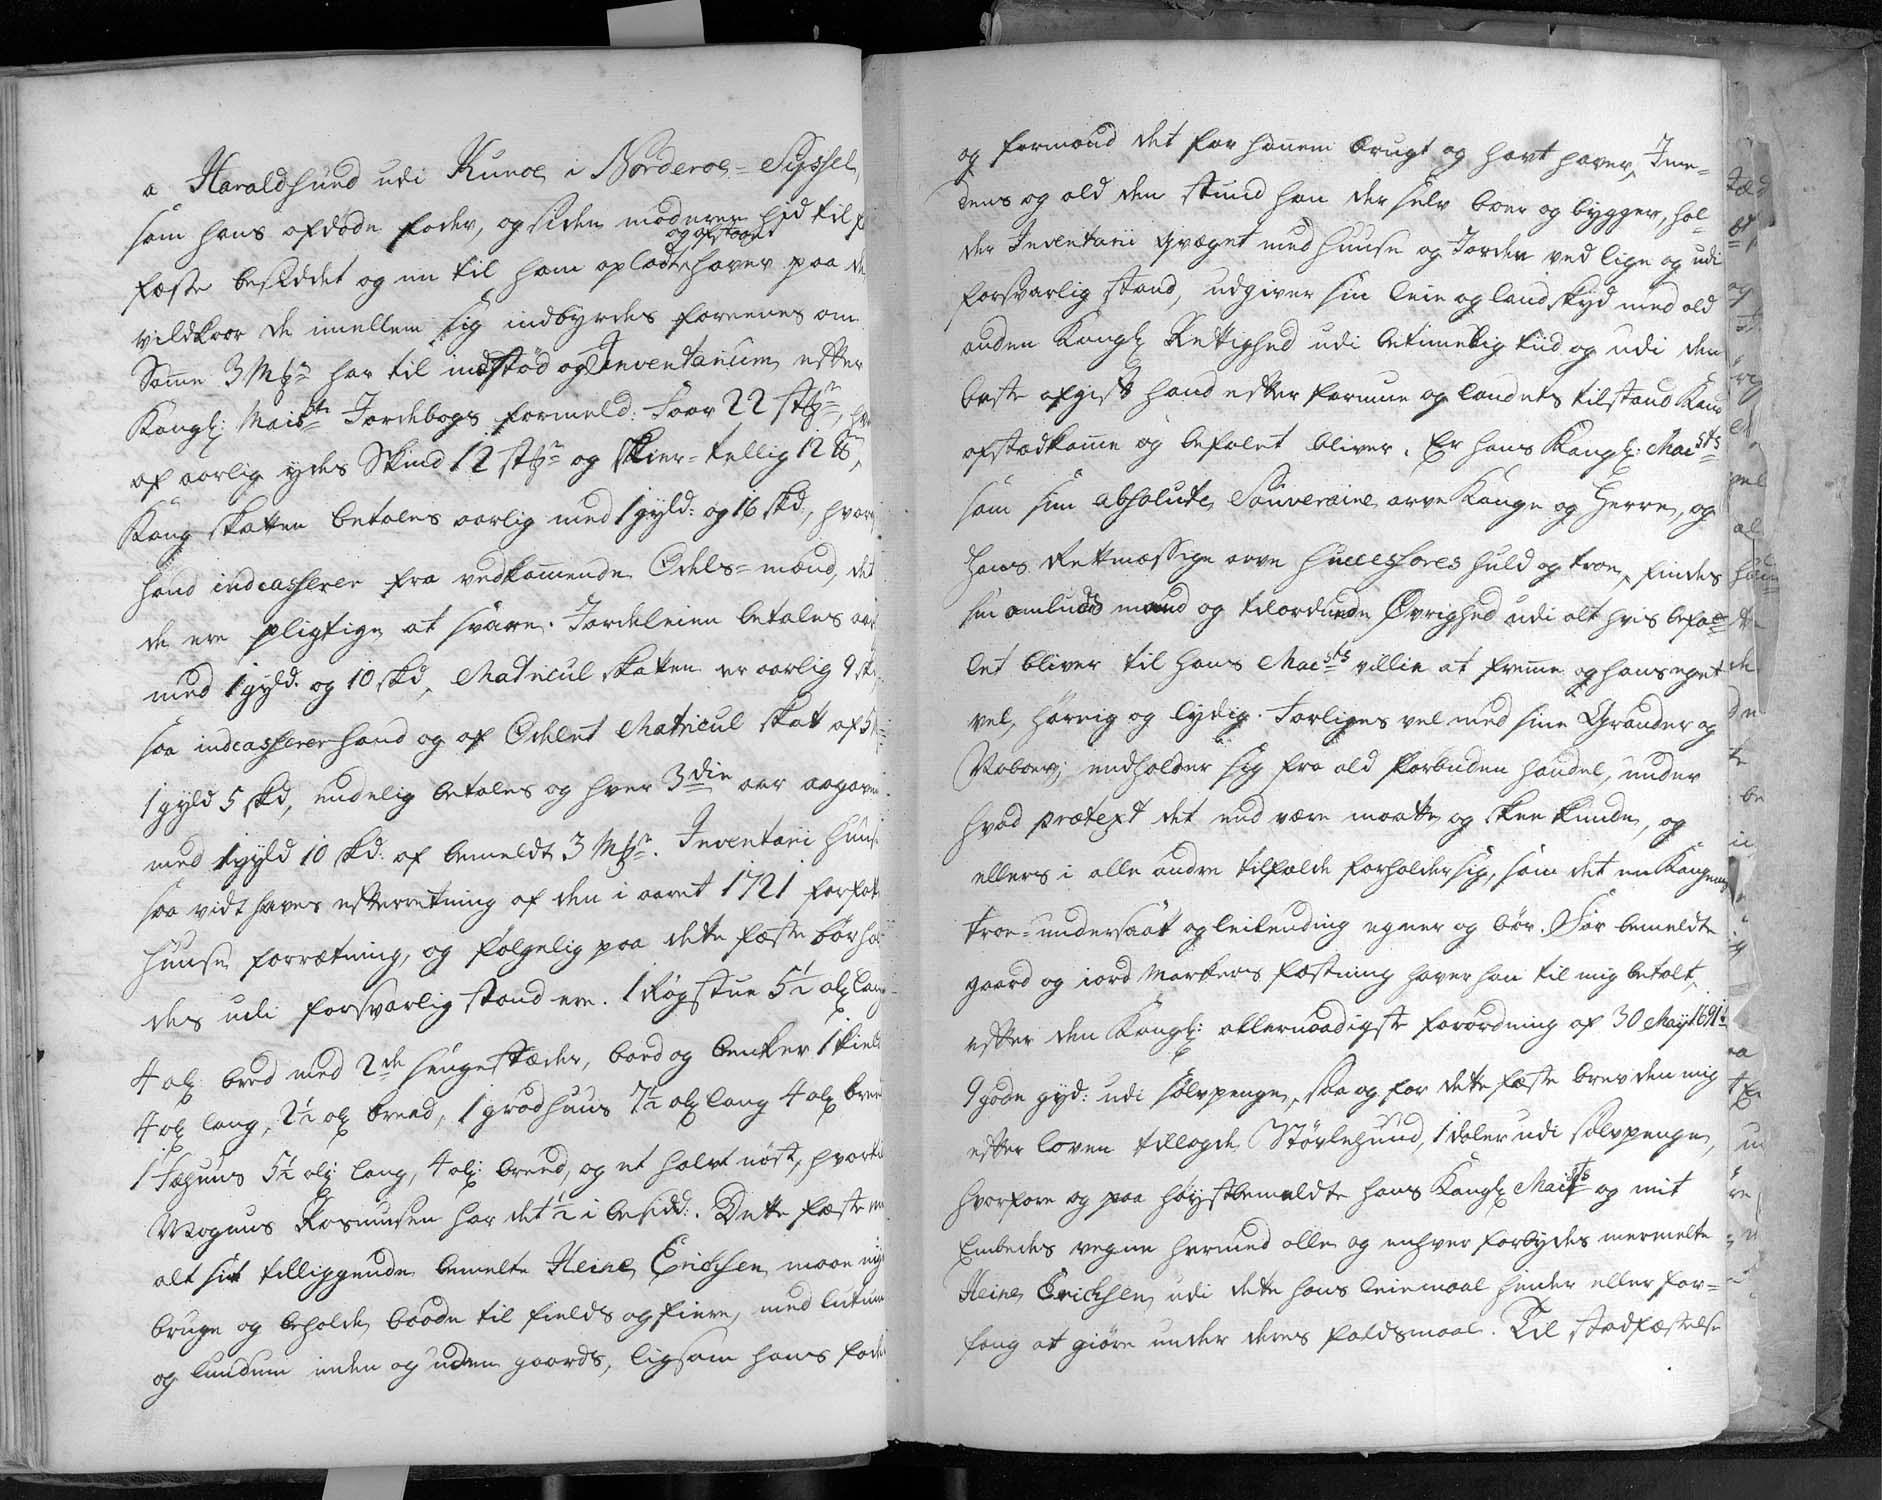 a Haraldsund udi Kunoe i Norderoe-Syssel,
som hans afdøde fader, og siden moderen hid til
og afstaaet
fæste besiddet og nu til ham opladt haver paa de
vildkoor de imellem sig indbyrdes foreenes om
Samme 3 Mkr har til indstød og Inventarium efter
Kongl: Maists Jordebogs formeld: Faar 22 stkr,
af aarlig ydes Skind 12 stkr og Skier-tællig 12 ℔r,
Kong skatten betales aarlig med 1 gyld: og 16 skd:,
hand indcasserer fra vedkommende Odels-mænd, det
de ere pligtige at svare. Jordeleien betales
med 1 gyld. og 10 skd, Matricul skatten er aarlig 9
saa indcasserer hand og af Odelet Matricul skat af 5
1 gyld 5 skd, endelig betales og hver 3die aar aagaven
med 1 gyld 10 skd: af bemeldt 3 Mkr. Inventarii Huuse
saa vidt haves efterretning af den i aaret 1721 forfat
huuse forretning, og følgelig paa dette fæste bør
des udi forsvarlig stand ere. 1 Røgstue 5½ alj lang
4 alj breed med 2de sengestæder, bord og benker
4 alj lang, 2½ alj breed, 1 grødhuus 7½ alj lang 4 alj breed
1 Fæhuus 5½ alj lang, 4 alj: breed, og et halvt nøst,
Magnus Rasmusen har det ½ i besidd:. Dette fæste
alt sit tilliggende bemelte Heine Erichsen maae
bruge og beholde baade til fields og fiære, med lutum
og lundum inden og uden gaards, ligesom hans fader
og formand det for hannem brugt og havt haver, Ime-
dens og ald den stund han der selv boer og bygger, hol-
der Inventarii qvæget med huuse og Jorden ved lige og udi
forsvarlig stand, udgiver sin leie og landskyld med ald
anden Kongl: Rettighed udi betimelig tiid og udi den
beste afgift hand efter formue og landets tilstand kand
afstedkomme og befalet bliver. Er hans Kongl: Maists
som sin absolute Souveraine arve Konge og Herre, og
Hans Retmæssige arve Successores huld og troe, findes
sin ombuds mand og tilordnede Øvrighed udi alt hvis befa-
let bliver til hans Maists villie at fremme og hans eget
vel, hørig og lydig. Forliges vel med sine Grander og
Naboer; endholder sig fra ald forbuden handel, under
hvad prætext det end være maatte og skee kunde, og
ellers i alle andre tilfælde forholder sig, som det en Kongens
troe-undersaat og leilending egner og bør. For bemeldte
gaard og iord Markens fæstning haver han til mig betalt,
efter den Kongl: allernaadigste forordning af 30 Maij 1691
9 gode gyld: udi sølvpenge, saa og for dette fæste brev den mig
efter loven tillagde Støvlehund, 1 daler udi sølvpenge,
hvorfore og paa høystbemeldte hans Kongl: Maists og mit
Embedes vegne hermed alle og enhver forbydes mermelte
Heine Erichsen udi dette hans leiemaal hinder eller for-
fang at giøre under deres faldsmaal. Til stadfæstelse